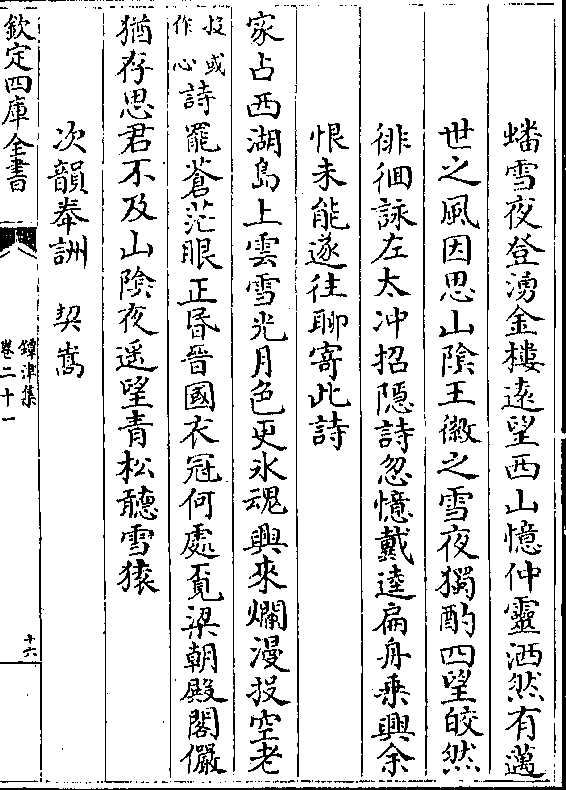 蟠雪夜登湧金樓遠望西山憶仲靈洒然有邁
世之風因思山隂王徽之雪夜獨酌四望皎然
徘徊詠左太冲招隠詩忽憶戴逵扁舟乗興余
恨未能遂往聊寄此詩
家占西湖島上雲雪光月色更氷魂興來爛漫投空老
投或作心詩罷蒼茫眼正昏晉國衣冠何處覔梁朝殿閣儼
猶存思君不及山隂夜遥望青松聽雪猿
次韻奉詶 契嵩
欽定四庫全書
鐔津集
卷二十一
十六